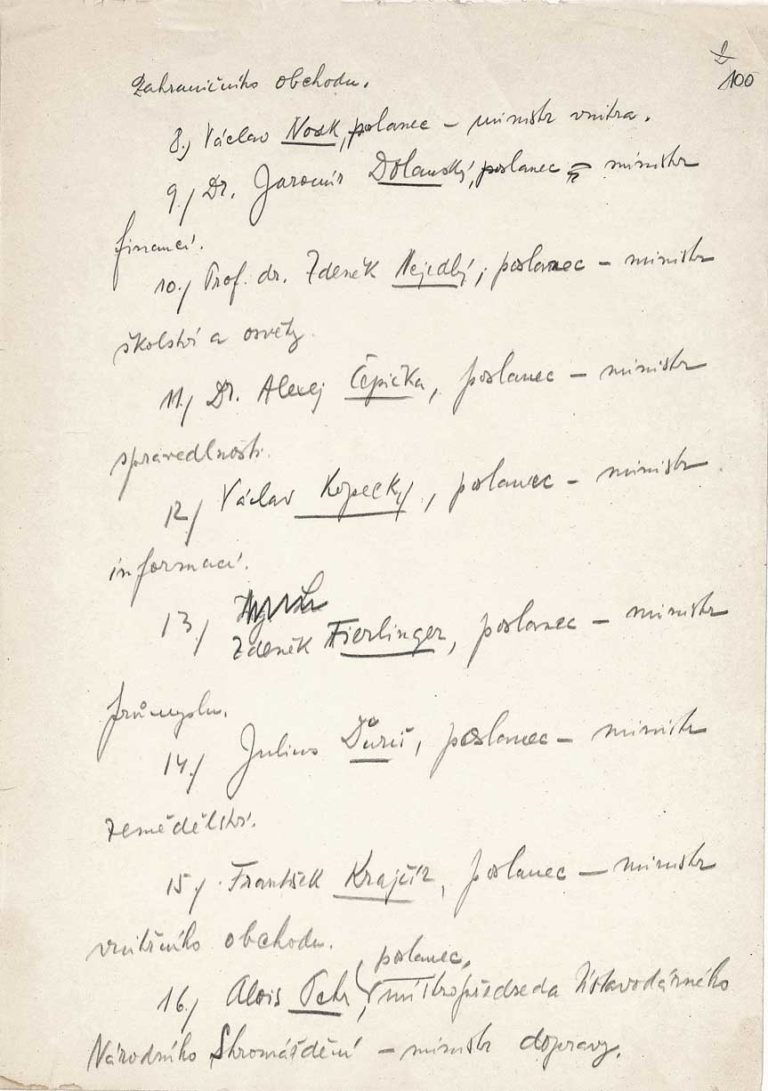 2
100
Zahraničního obchodu.
8.) Václav Nosek, poslanec – ministr vnitra.
9.) Dr. Jaromír Dolanský, poslanec – ministr
financí.
10.) Prof. dr. Zdeněk Nejedlý, poslanec – ministr
školství a osvěty.
11.) Dr. Alexej Čepička, poslanec – ministr
spravedlnosti.
12.) Václav Kopecký, poslanec – ministr
informací.
13.)
Zdeněk Fierlinger, poslanec – ministr
průmyslu.
14.) Julius Ďuriš, poslanec – ministr
zemědělství.
15.) František Krajčír, poslanec – ministr
vnitřního obchodu.
poslanec,
16.) Alois Petr, místopředseda Ústavodárného
Národního Shromáždění – ministr dopravy.